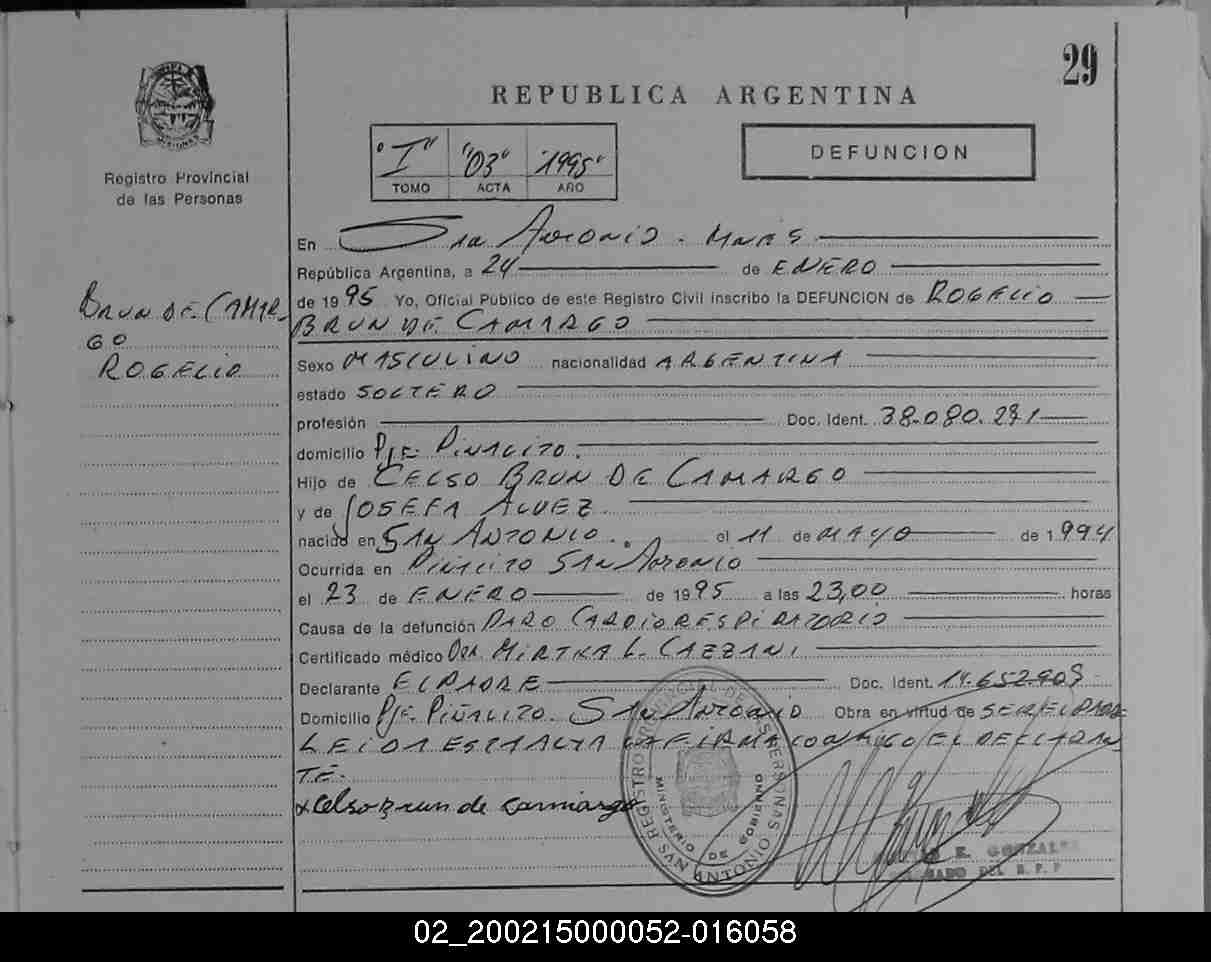 29
REPUBLICA ARGENTINA
"I" "03" "1995"
TOMO ACTA AÑO
DEFUNCION
MISIONES
Registro Provincial
de las Personas
BRUN DE CAMAR-
GO
ROGELIO
En San Antonio - Mnes
República Argentina, a 24 de ENERO
de 1995 Yo, Oficial Público de este Registro Civil inscribo la DEFUNCION de ROGELIO
BRUN DE CAMARGO
Sexo MASCULINO nacionalidad ARGENTINA
estado SOLTERO
profesión Doc. Ident. 38.080.271
domicilio PJE. PIÑALITO.
Hijo de CELSO BRUN DE CAMARGO
y de JOSEFA ALVEZ
nacido en SAN ANTONIO. el 11 de MAYO de 1994
Ocurrida en PIÑALITO SAN ANTONIO
el 23 de ENERO de 1995 a las 23,00 horas
Causa de la defunción PARO CARDIORESPIRATORIO
Certificado médico DRA. MIRTHA L. CAZZANI
Declarante EL PADRE Doc. Ident. 14.652.909
Domicilio PJE. PIÑALITO. SAN ANTONIO Obra en virtud de SER EL PADRE
LEIDA ESTA ACTA LA FIRMA CONMIGO EL DECLARAN-
TE.
x Celso Brun de camargo
REGISTRO PROVINCIAL DE LAS PERSONAS
MINISTERIO DE GOBIERNO
SAN ANTONIO
E. GONZALEZ
DEL R. P. P
02_200215000052-016058